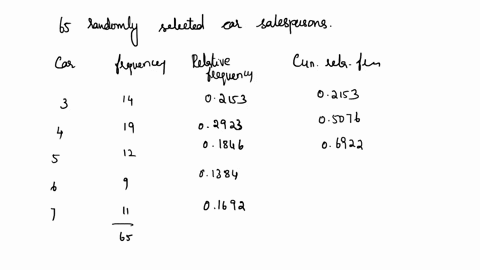 65 randomly selected car salespersons.
Car frequency Relative frequency Cum. rela. fre
3 14 0.2153 0.2153
4 19 0.2923 0.5076
5 12 0.1846 0.6922
6 9 0.1384
7 11 0.1692
65